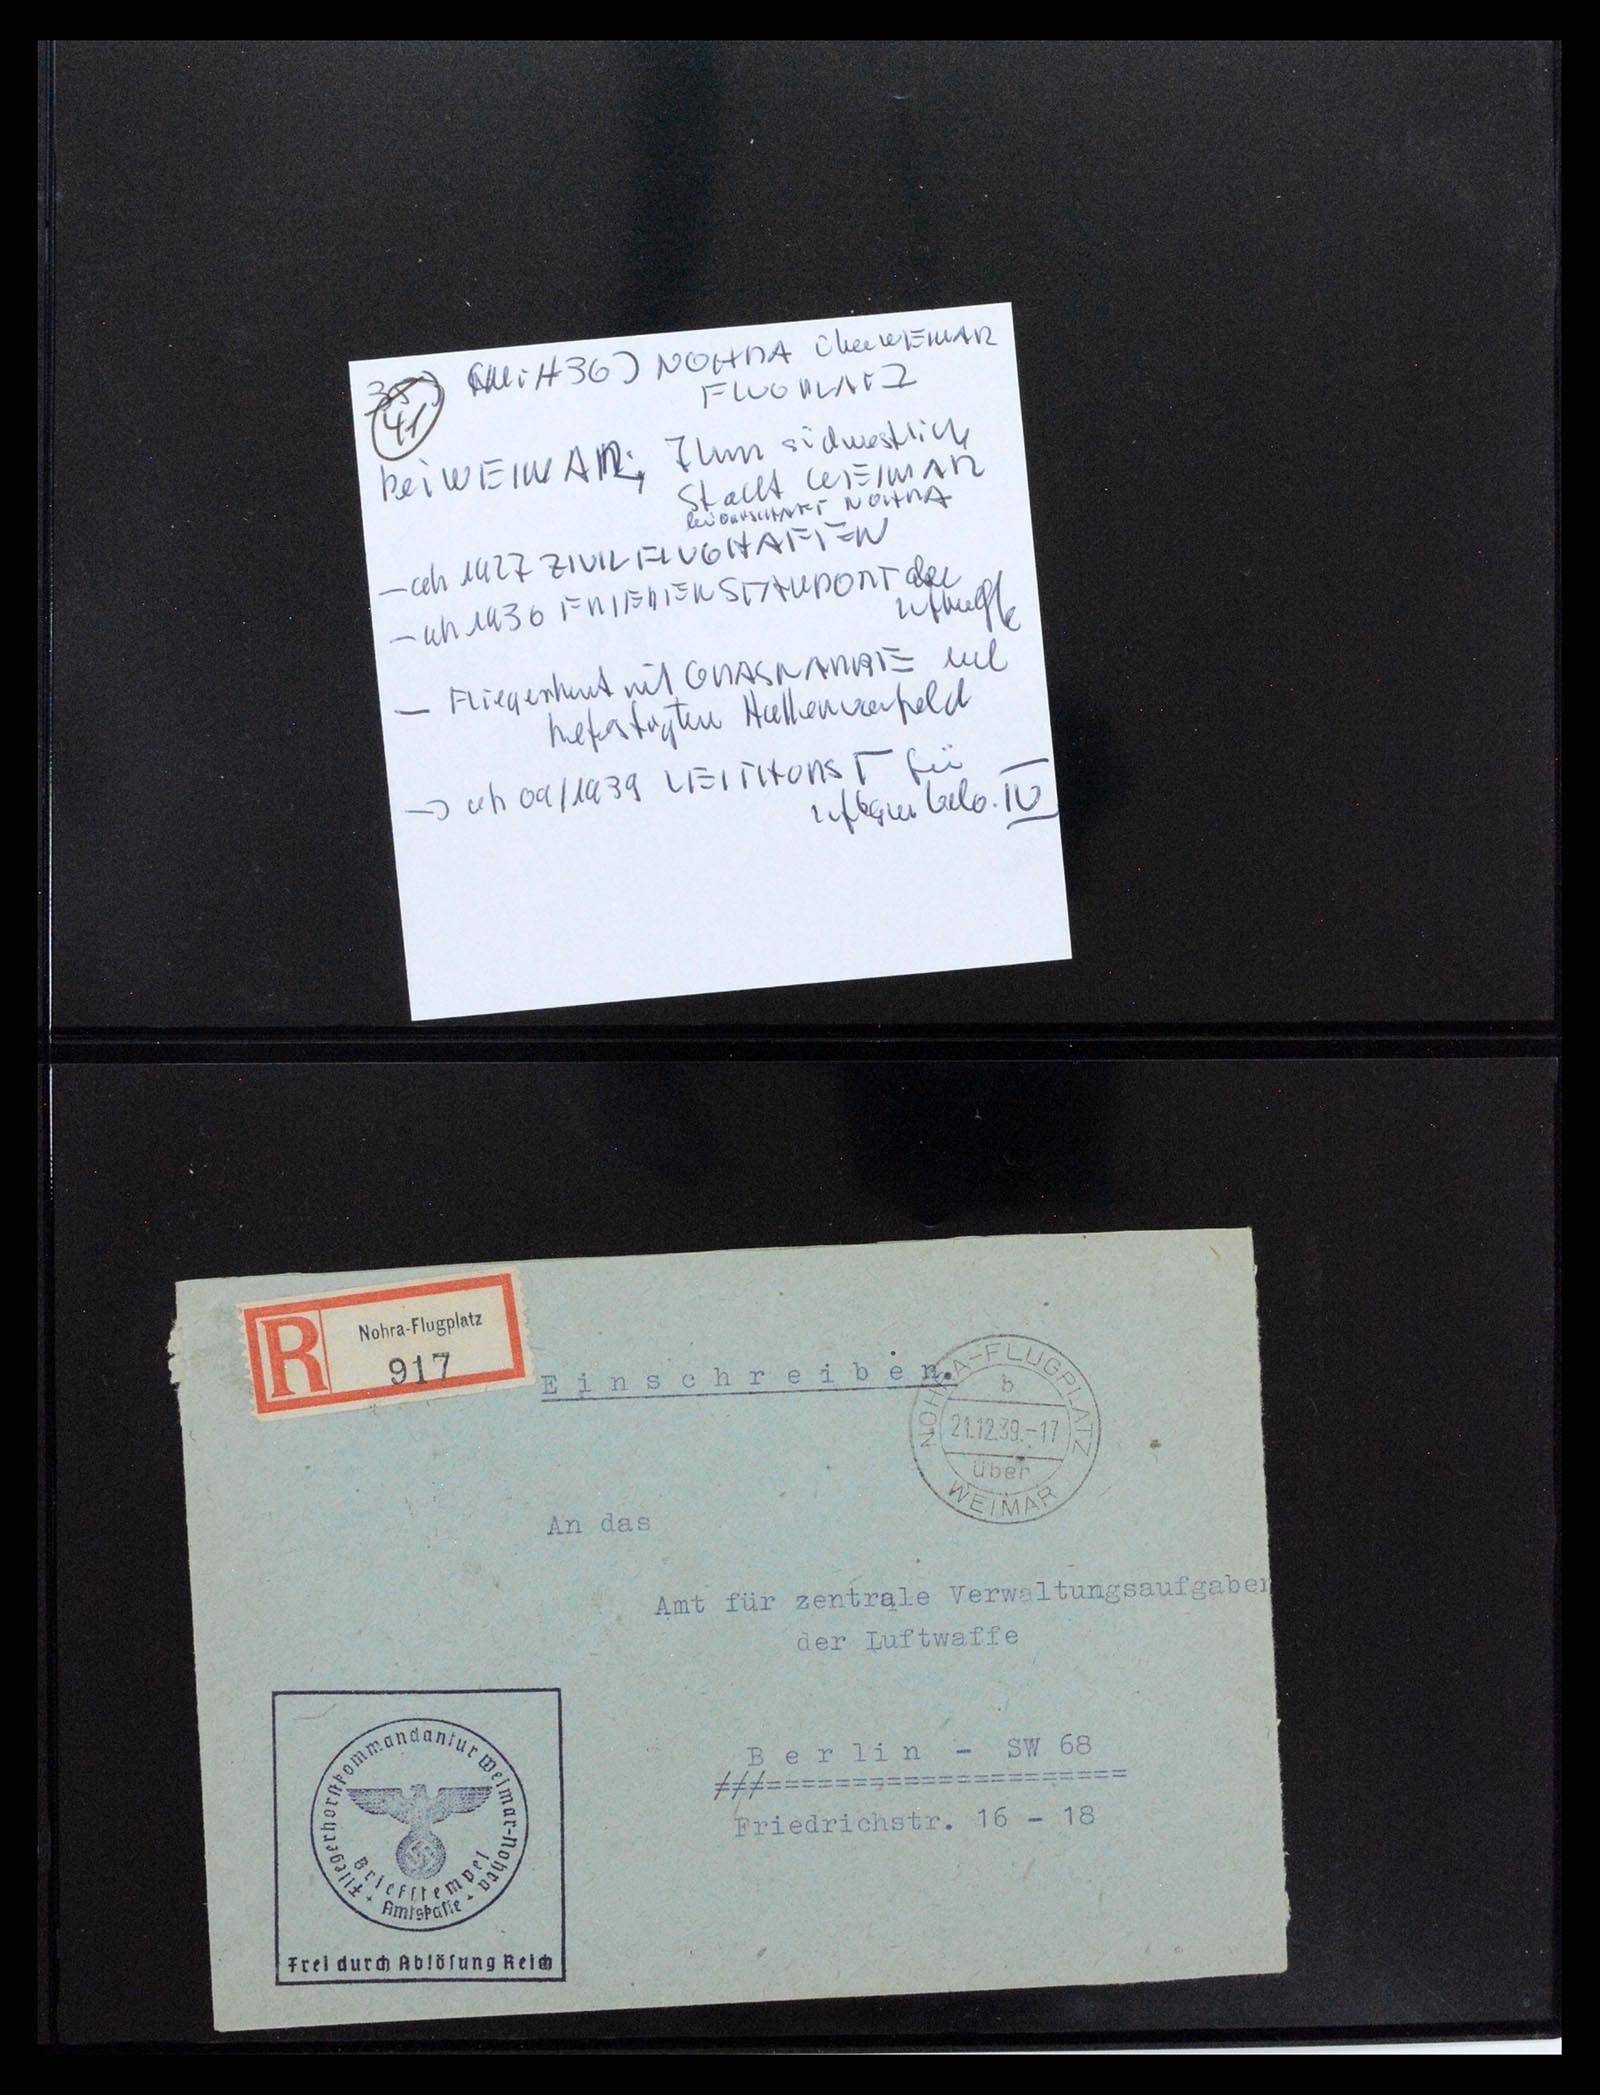 41
NOHRA über WEIMAR
FLUGPLATZ
bei WEIMAR; 7km südwestlich
Stadt WEIMAR
bei ORTSCHAFT NOHRA
– ab 1927 ZIVILFLUGHAFEN
– ab 1936 FRIEDENSTANDORT der
Luftwaffe
– Fliegerhorst mit GRASNARBE und
befestigten Hallenvorfeld
→ ab 09/1939 LEITHORST für
IV
R
Nohra-Flugplatz
917
Einschreiben.
NOHRA-FLUGPLATZ
b
21.12.39.-17
über
WEIMAR
An das
Amt für zentrale Verwaltungsaufgaben
der Luftwaffe
Berlin - SW 68
///=====================
Friedrichstr. 16 - 18
Fliegerhorstkommandantur Weimar-Nohra
Briefstempel
Amtskasse
Frei durch Ablösung Reich